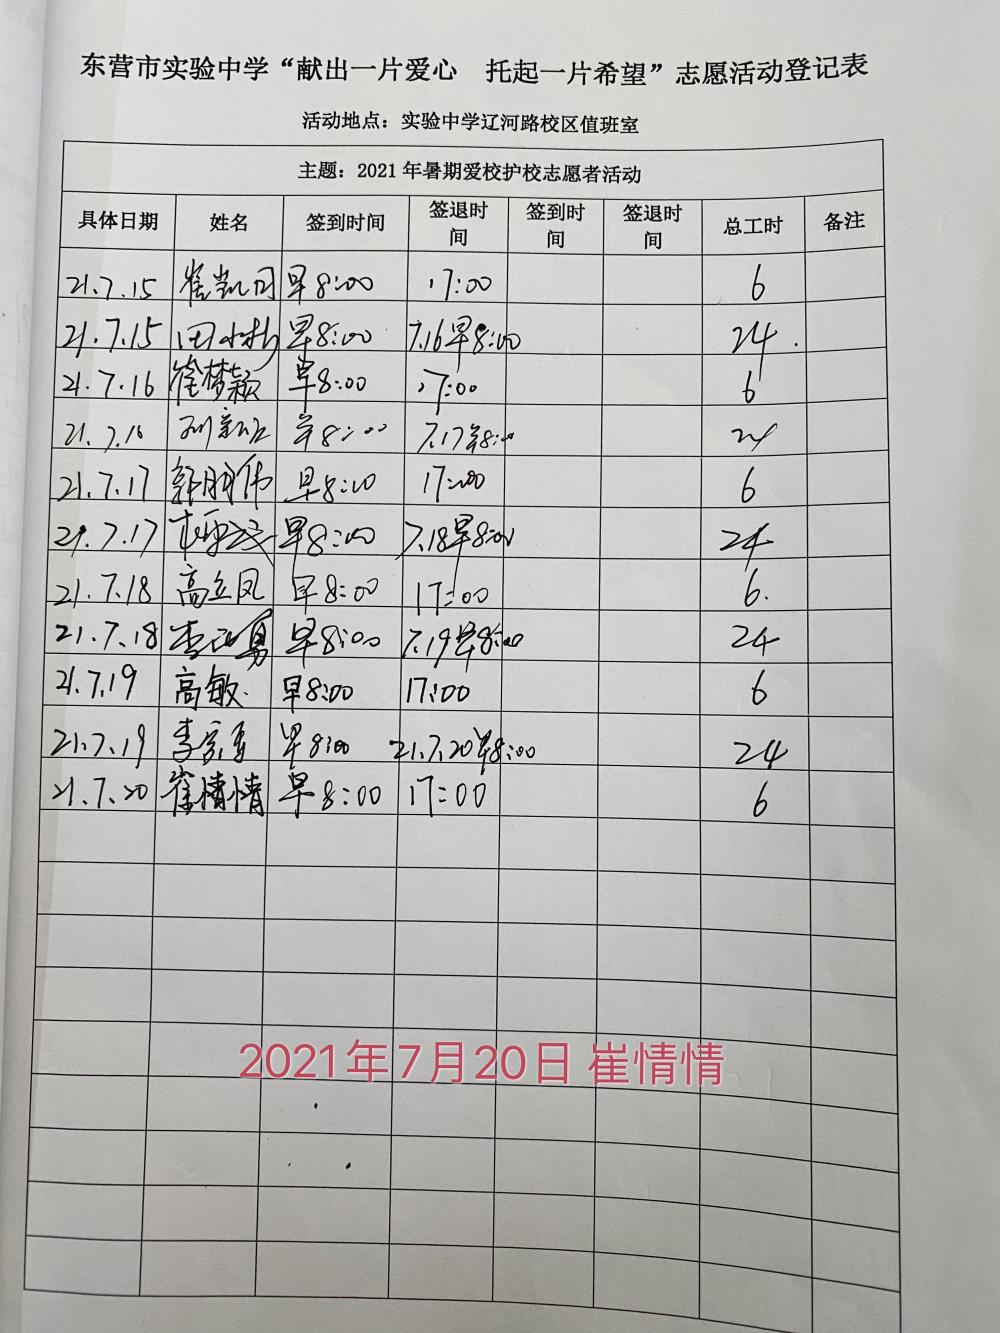 东营市实验中学“献出一片爱心 托起一片希望”志愿活动登记表
活动地点：实验中学辽河路校区值班室
主题：2021年暑期爱校护校志愿者活动
具体日期 姓名 签到时间 签退时间 签到时间 签退时间 总工时 备注
21.7.15 崔凯同 早8:00 17:00 6
21.7.15 田小彬 早8:00 7.16早8:00 24
21.7.16 崔梦颖 早8:00 17:00 6
21.7.16 早8:00 7.17早8:00 24
21.7.17 郭朋伟 早8:00 17:00 6
21.7.17 早8:00 7.18早8:00 24
21.7.18 高立凤 早8:00 17:00 6.
21.7.18 早8:00 7.19早8:00 24
21.7.19 高敏 早8:00 17:00 6
21.7.19 早8:00 21.7.20早8:00 24
21.7.20 崔情情 早8:00 17:00 6
2021年7月20日 崔情情